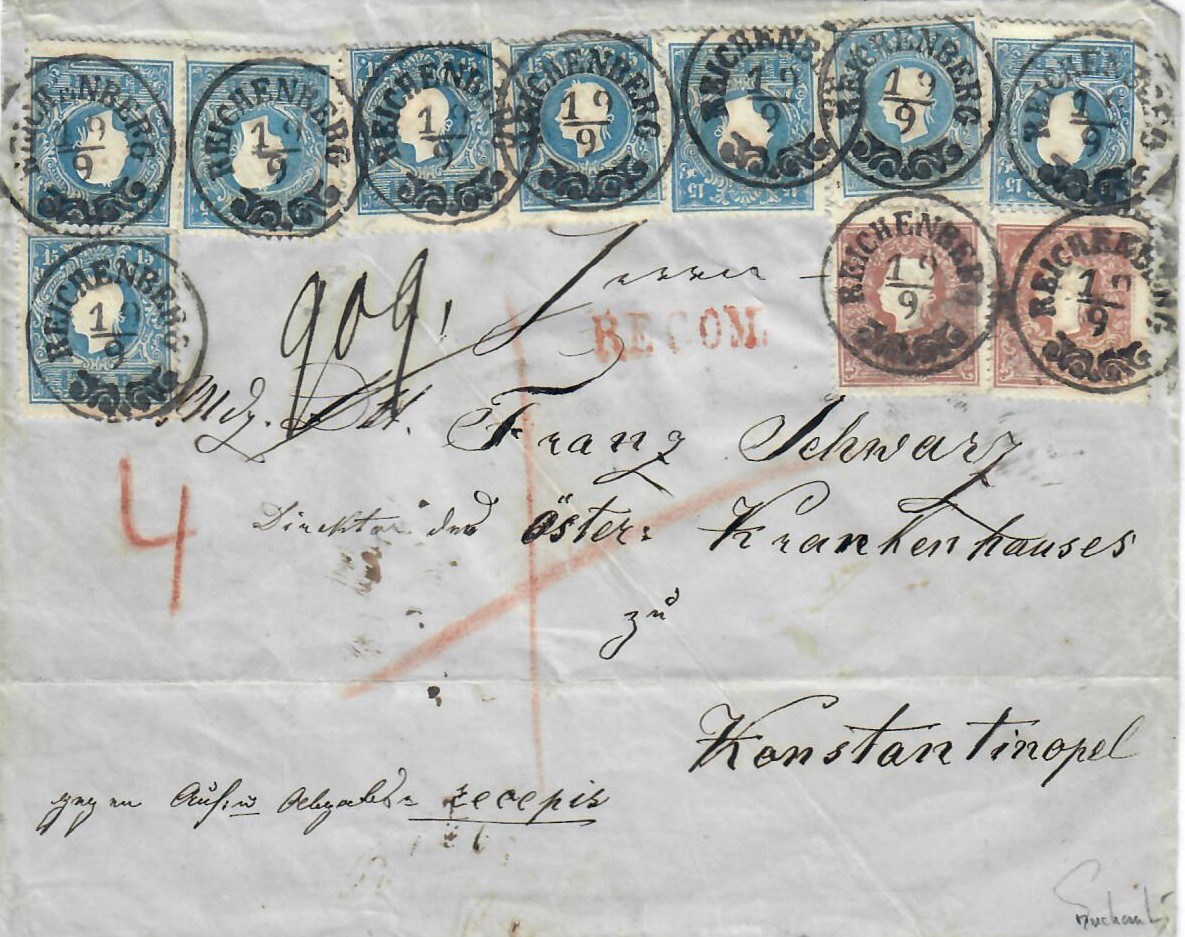 REICHENBERG 19/9 REICHENBERG 19/9 REICHENBERG 19/9 REICHENBERG 19/9 REICHENBERG 19/9 REICHENBERG 19/9 REICHENBERG 19/9
REICHENBERG 19/9 REICHENBERG 19/9 REICHENBERG 19/9
909,
RECOM.
Franz Schwarz
4
Direktor des öster: Krankenhauses
zu
Konstantinopel
gegen Auf: u Abgabs= recepis